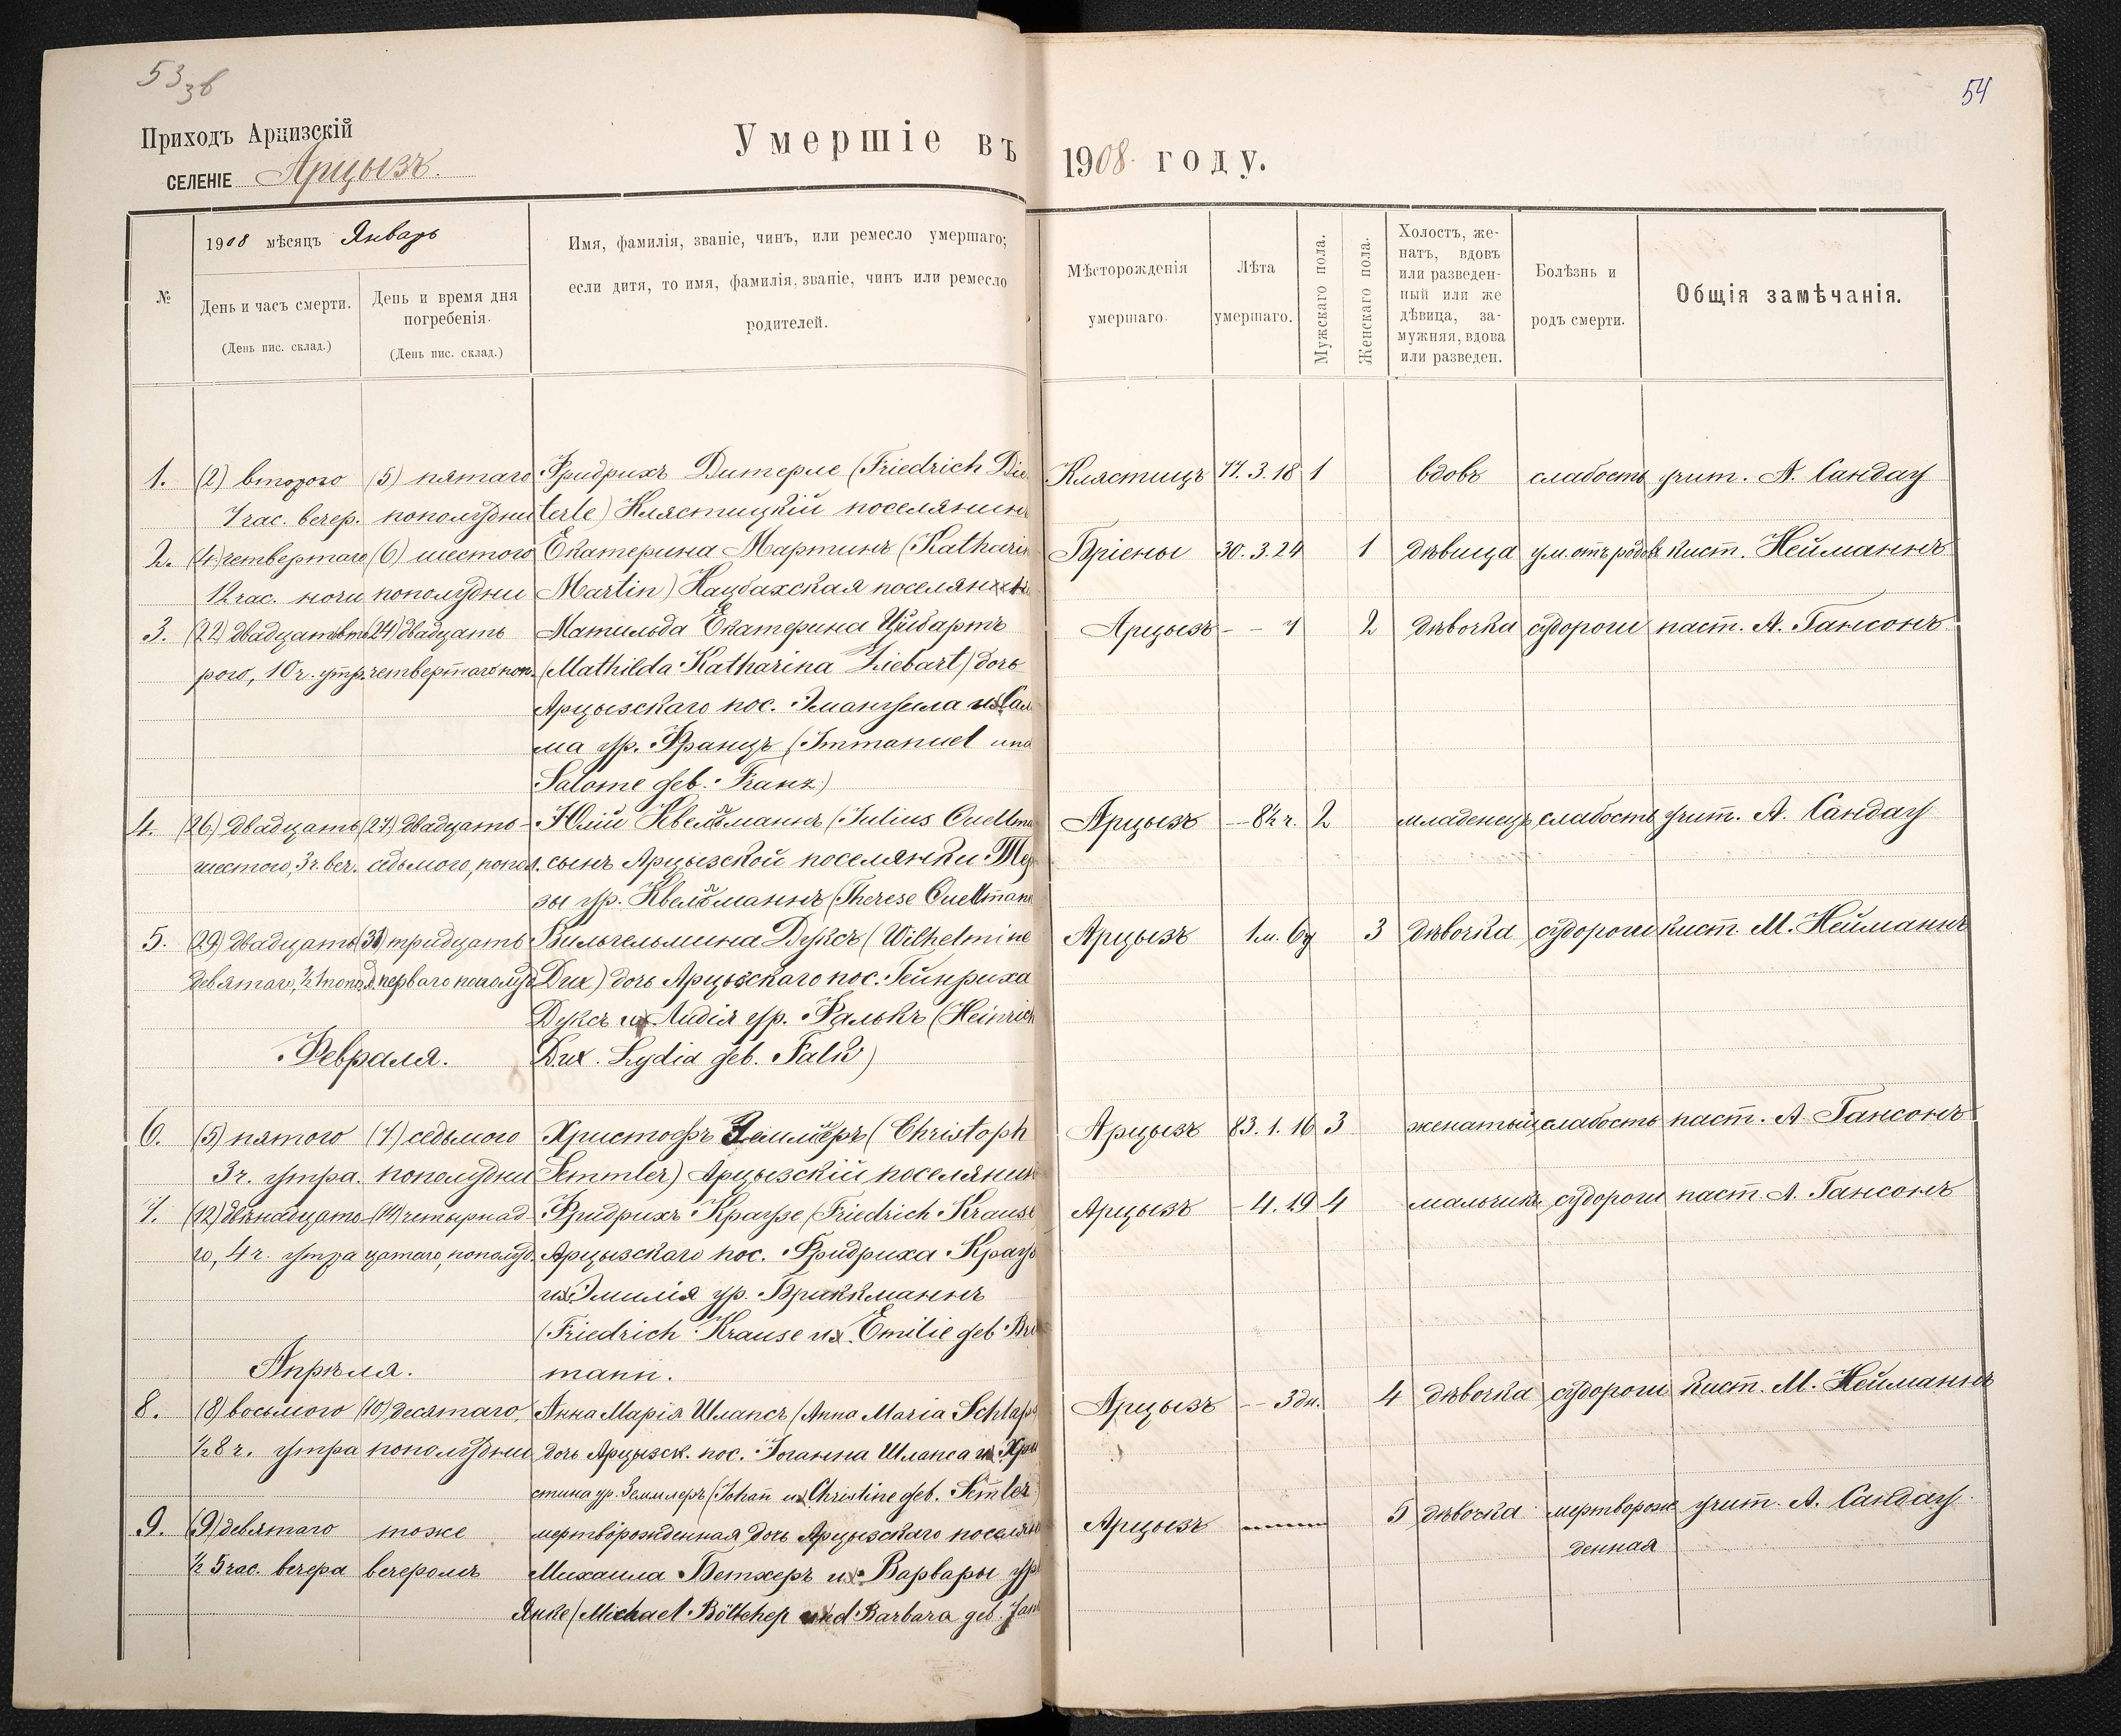 53 зв
54
Приходъ Арцизскій
СЕЛЕНІЕ Арцызъ.
Умершіе въ 1908 году.
№
1908 мѣсяцъ Январь
День и часъ смерти.
(День пис. склад.)
День и время дня погребенія.
(День пис. склад.)
Имя, фамилія, званіе, чинъ, или ремесло умершаго;
если дитя, то имя, фамилія, званіе, чинъ или ремесло
родителей.
Мѣсторожденія умершаго.
Лѣта умершаго.
Мужскаго пола.
Женскаго пола.
Холостъ, же-
натъ, вдовъ
или разведен-
ный или же
дѣвица, за-
мужняя, вдова
или разведен.
Болѣзнь и родъ смерти.
Общія замѣчанія.
1. (2) второго (5) пятаго Фридрихъ Дитерле (Friedrich Die Клястицъ 77. 3. 18 1 вдовъ слабость учит. А. Сандау
7 час. вечер. пополудни terle) Клястицкій поселянинъ
2. (4) четвертаго (6) шестого Екатерина Мартинъ (Katharin Бріены 30. 3. 24 1 дѣвица ум. отъ родовъ кист. Нейманнъ
12 час. ночи пополудни Martin) Кацбахская поселянка
3. (22) двадцатьвто (24) двадцать Матильда Екатерина Цибартъ Арцызъ - - 7 2 дѣвочка судороги паст. А. Гансонъ
рого, 10 ч. утр. четвертаго поп. (Mathilda Katharina Ziebart) дочь
Арцызскаго пос. Эмануила и Сал
ма ур. Францъ (Immanuel und
Salome geb. Franz)
4. (26) двадцать (27) двадцать- Юлій Квельманнъ (Julius Quellma Арцызъ - - 8½ ч. 2 младенецъ слабость учит. А. Сандау
шестого, 3 ч. веч. седьмого, попол. сынъ Арцызской поселянки Тер
зы ур. Квельманнъ (Therese Quellmann
5. (29) двадцать (31) тридцать Вильгельмина Дуксъ (Wilhelmine Арцызъ 1 м. 6 д 3 дѣвочка судороги кист. М. Нейманнъ
девятаго, ½ 1 попол. перваго пополуд Dux) дочь Арцызскаго пос. Гейнриха
Дуксъ и Лидія ур. Фалькъ (Heinrich
Февраля. Dux. Lydia geb. Falk)
6. (5) пятого (7) седьмого Христофъ Земмлеръ (Christoph Арцызъ 83. 1. 16 3 женатый слабость паст. А. Гансонъ
3 ч. утра. пополудни Semmler) Арцызскій поселянин
7. (12) двѣнадцато (14) четырнад- Фридрихъ Краузе (Friedrich Krause Арцызъ - 4. 19 4 мальчикъ судороги паст. А. Гансонъ
го, 4 ч. утра цатаго, пополуд. Арцызскаго пос. Фридриха Крауз
и Эмилія ур. Бракманнъ
(Friedrich Krause u. Emilie geb
Апрѣля. mann.
8. (8) восьмого (10) десятаго, Анна Марія Шлапсъ (Anna Maria Schlaps Арцызъ - - 3 дн. 4 дѣвочка судороги кист. М. Нейманнъ
½ 8 ч. утра пополудни дочь Арцызск. пос. Іоганна Шлапса и Хри
стина ур. Земмлеръ (Johan u. Christine geb. Semler
9. (9) девятаго тоже мертворожденная дочь Арцызскаго поселян Арцызъ 5 дѣвочка мертворож учит. А. Сандау
денная
½ 5 час. вечера вечеромъ Михаила Бетхеръ и Варвары ур
Янке (Michael Böttcher und Barbara geb. Jan